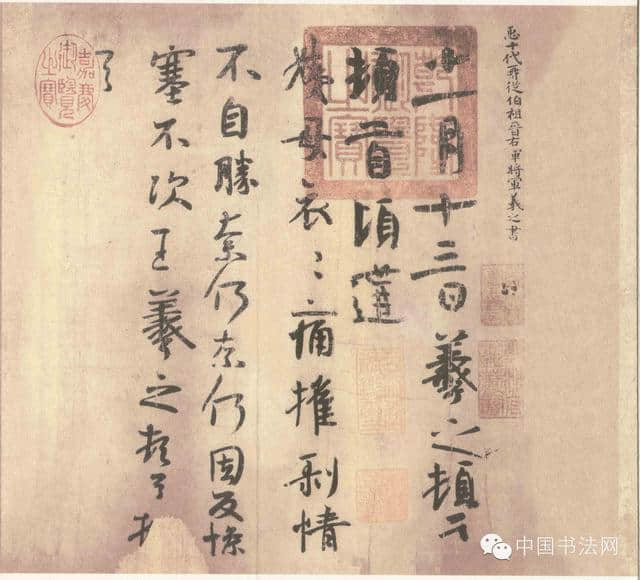 臣十代再從伯祖晉右軍將軍羲之書
十一月十三日羲之頓首
頓首頃遘
姨母哀〻痛摧剝情
不自勝奈何奈何因反慘
塞不次王羲之頓首頓
首
乾隆御覽之寶
嘉慶御覽之寶
中国书法网